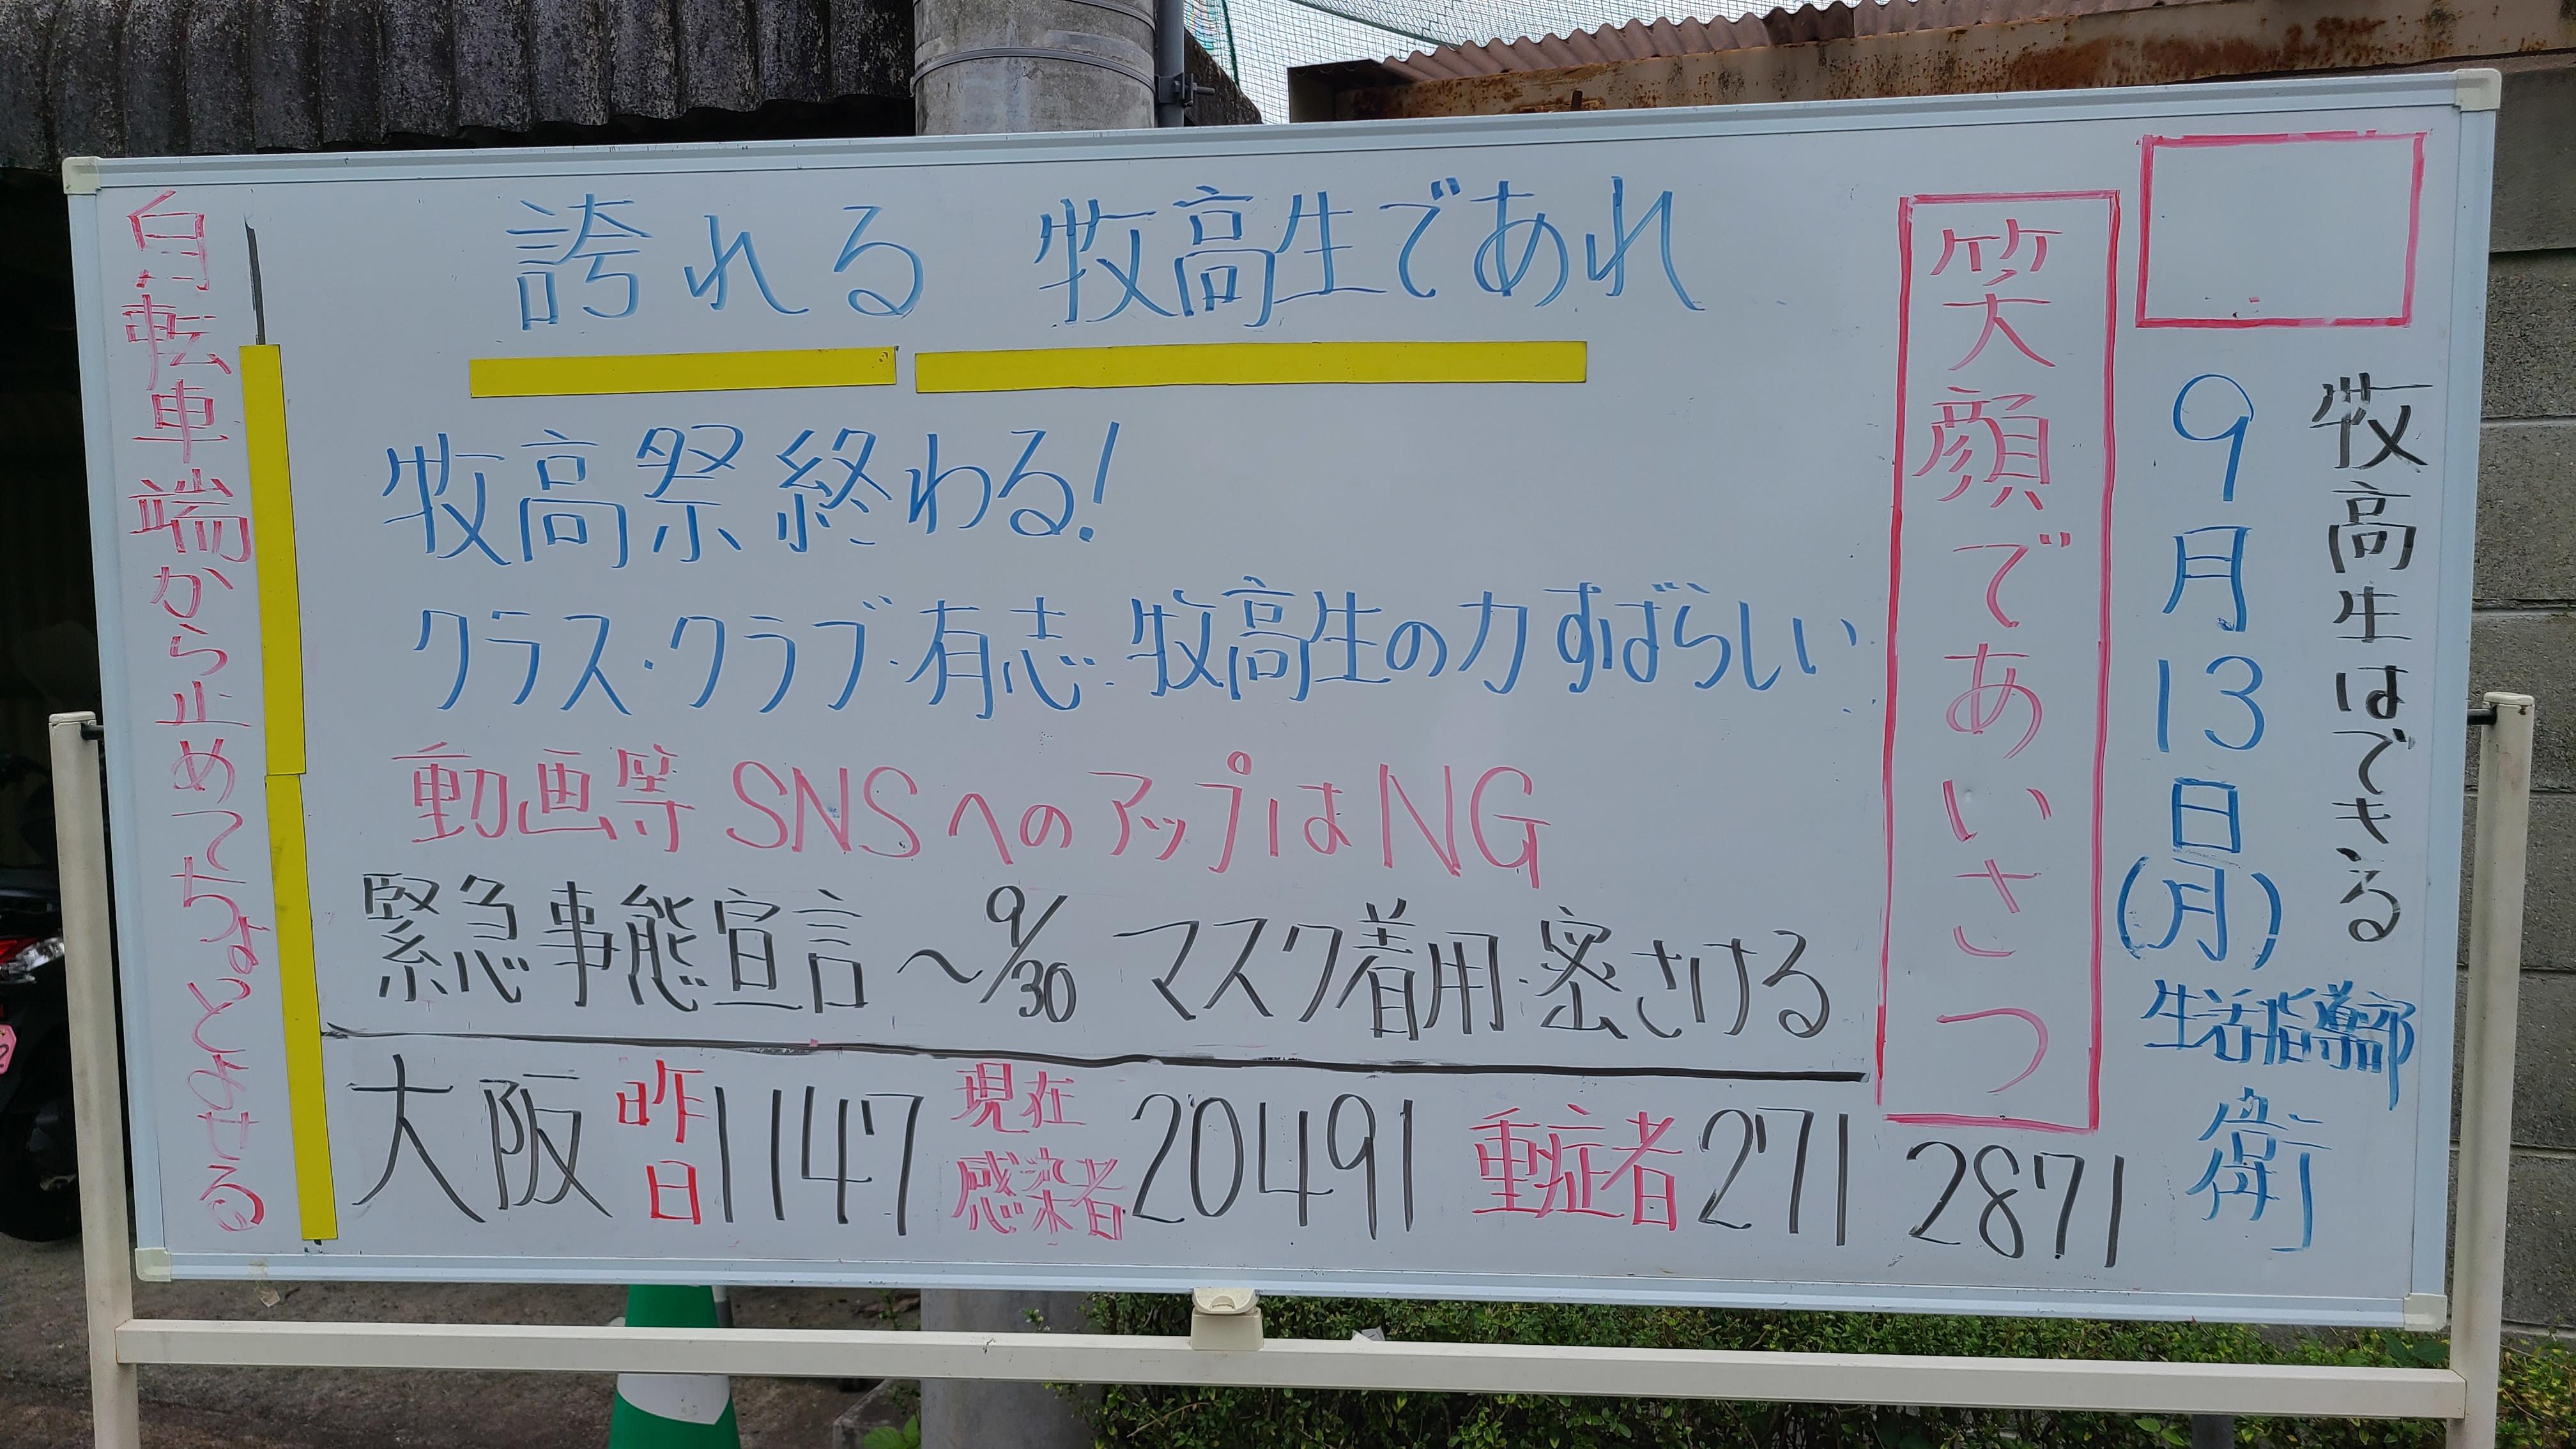 牧高生はできる
9月13日(月)
生活指導部
衛
笑顔であいさつ
誇れる 牧高生であれ
牧高祭終わる!
クラス・クラブ・有志・牧高生の力すばらしい
動画等SNSへのアップはNG
緊急事態宣言〜9/30 マスク着用・密さける
大阪 昨日 1147 現在感染者 20491 重症者 271 2871
自転車端から止めてちょとみせる